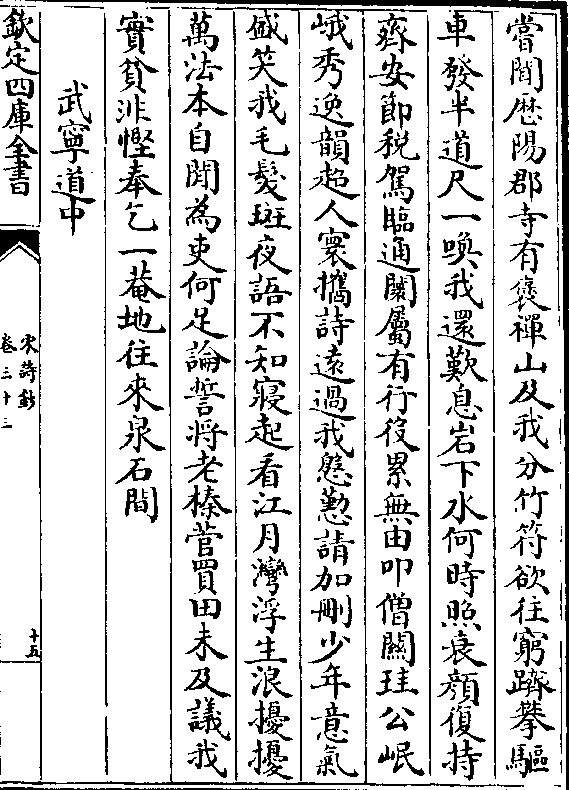 嘗聞歴陽郡寺有褒禪山及我分竹符欲往窮躋攀驅
車發半道尺一喚我還歎息岩下水何時照衰顔復持
齊安節税駕臨通闤屬有行役累無由叩僧關珪公岷
峨秀逸韻超人寰攜詩遠過我慇懃請加刪少年意氣
盛笑我毛髮斑夜語不知寢起看江月灣浮生浪擾擾
萬法本自閒為吏何足論誓將老榛菅買田未及議我
實貧非慳奉乞一菴地往來泉石間
武寧道中
欽定四庫全書
宋詩鈔
卷三十三
十五